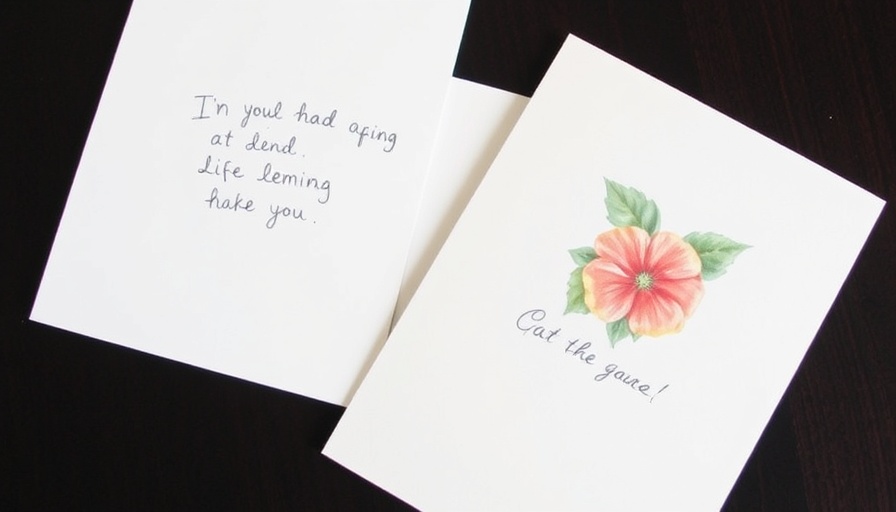 I'n youl had aping
at dend.
Life leming
hake you.
Cat the gaura!